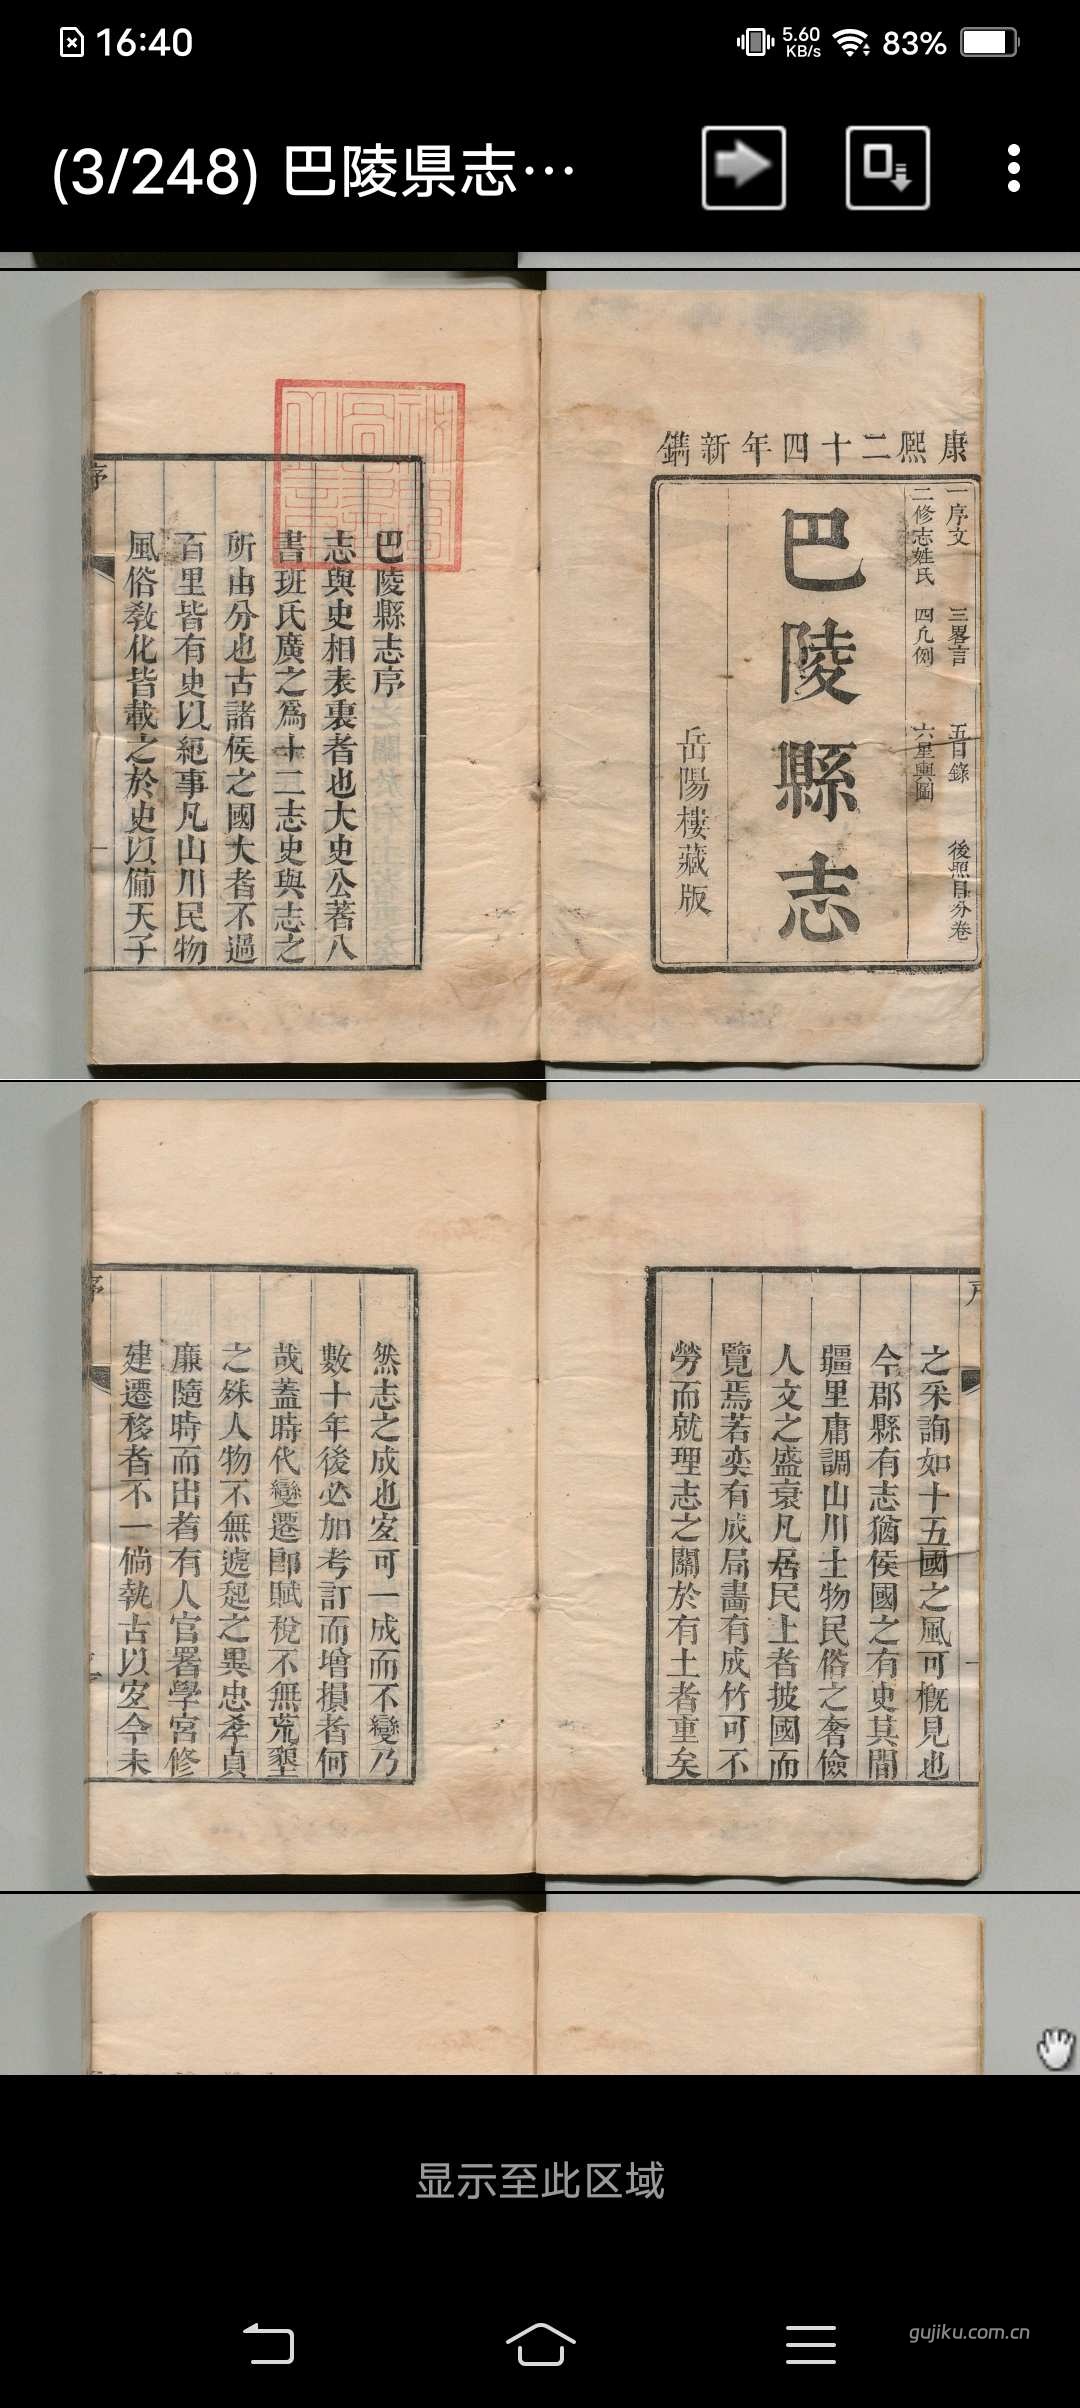 16:40
5.60
KB/s
83%
(3/248) 巴陵県志…
康熙二十四年新鐫
一序文 三畧言 五目錄 後照目分卷
二修志姓氏 四凡例 六星輿圖
巴陵縣志
岳陽樓藏版
序
巴陵縣志序
志與史相表裏者也大史公著八
書班氏廣之爲十二志史與志之
所由分也古諸侯之國大者不過
百里皆有史以紀事凡山川民物
風俗教化皆載之於史以備天子
一
之采詢如十五國之風可概見也
今郡縣有志猶侯國之有史其間
疆里庸調山川土物民俗之奢儉
人文之盛衰凡居民上者披國而
覽焉若奕有成局畵有成竹可不
勞而就理志之關於有土者重矣
序
然志之成也㝎可一成而不變乃
數十年後必加考訂而增損者何
哉蓋時代變遷卽賦稅不無荒墾
之殊人物不無遞起之異忠孝貞
廉隨時而出者有人官署學宮修
建遷移者不一倘執古以㝎今未
显示至此区域
gujiku.com.cn